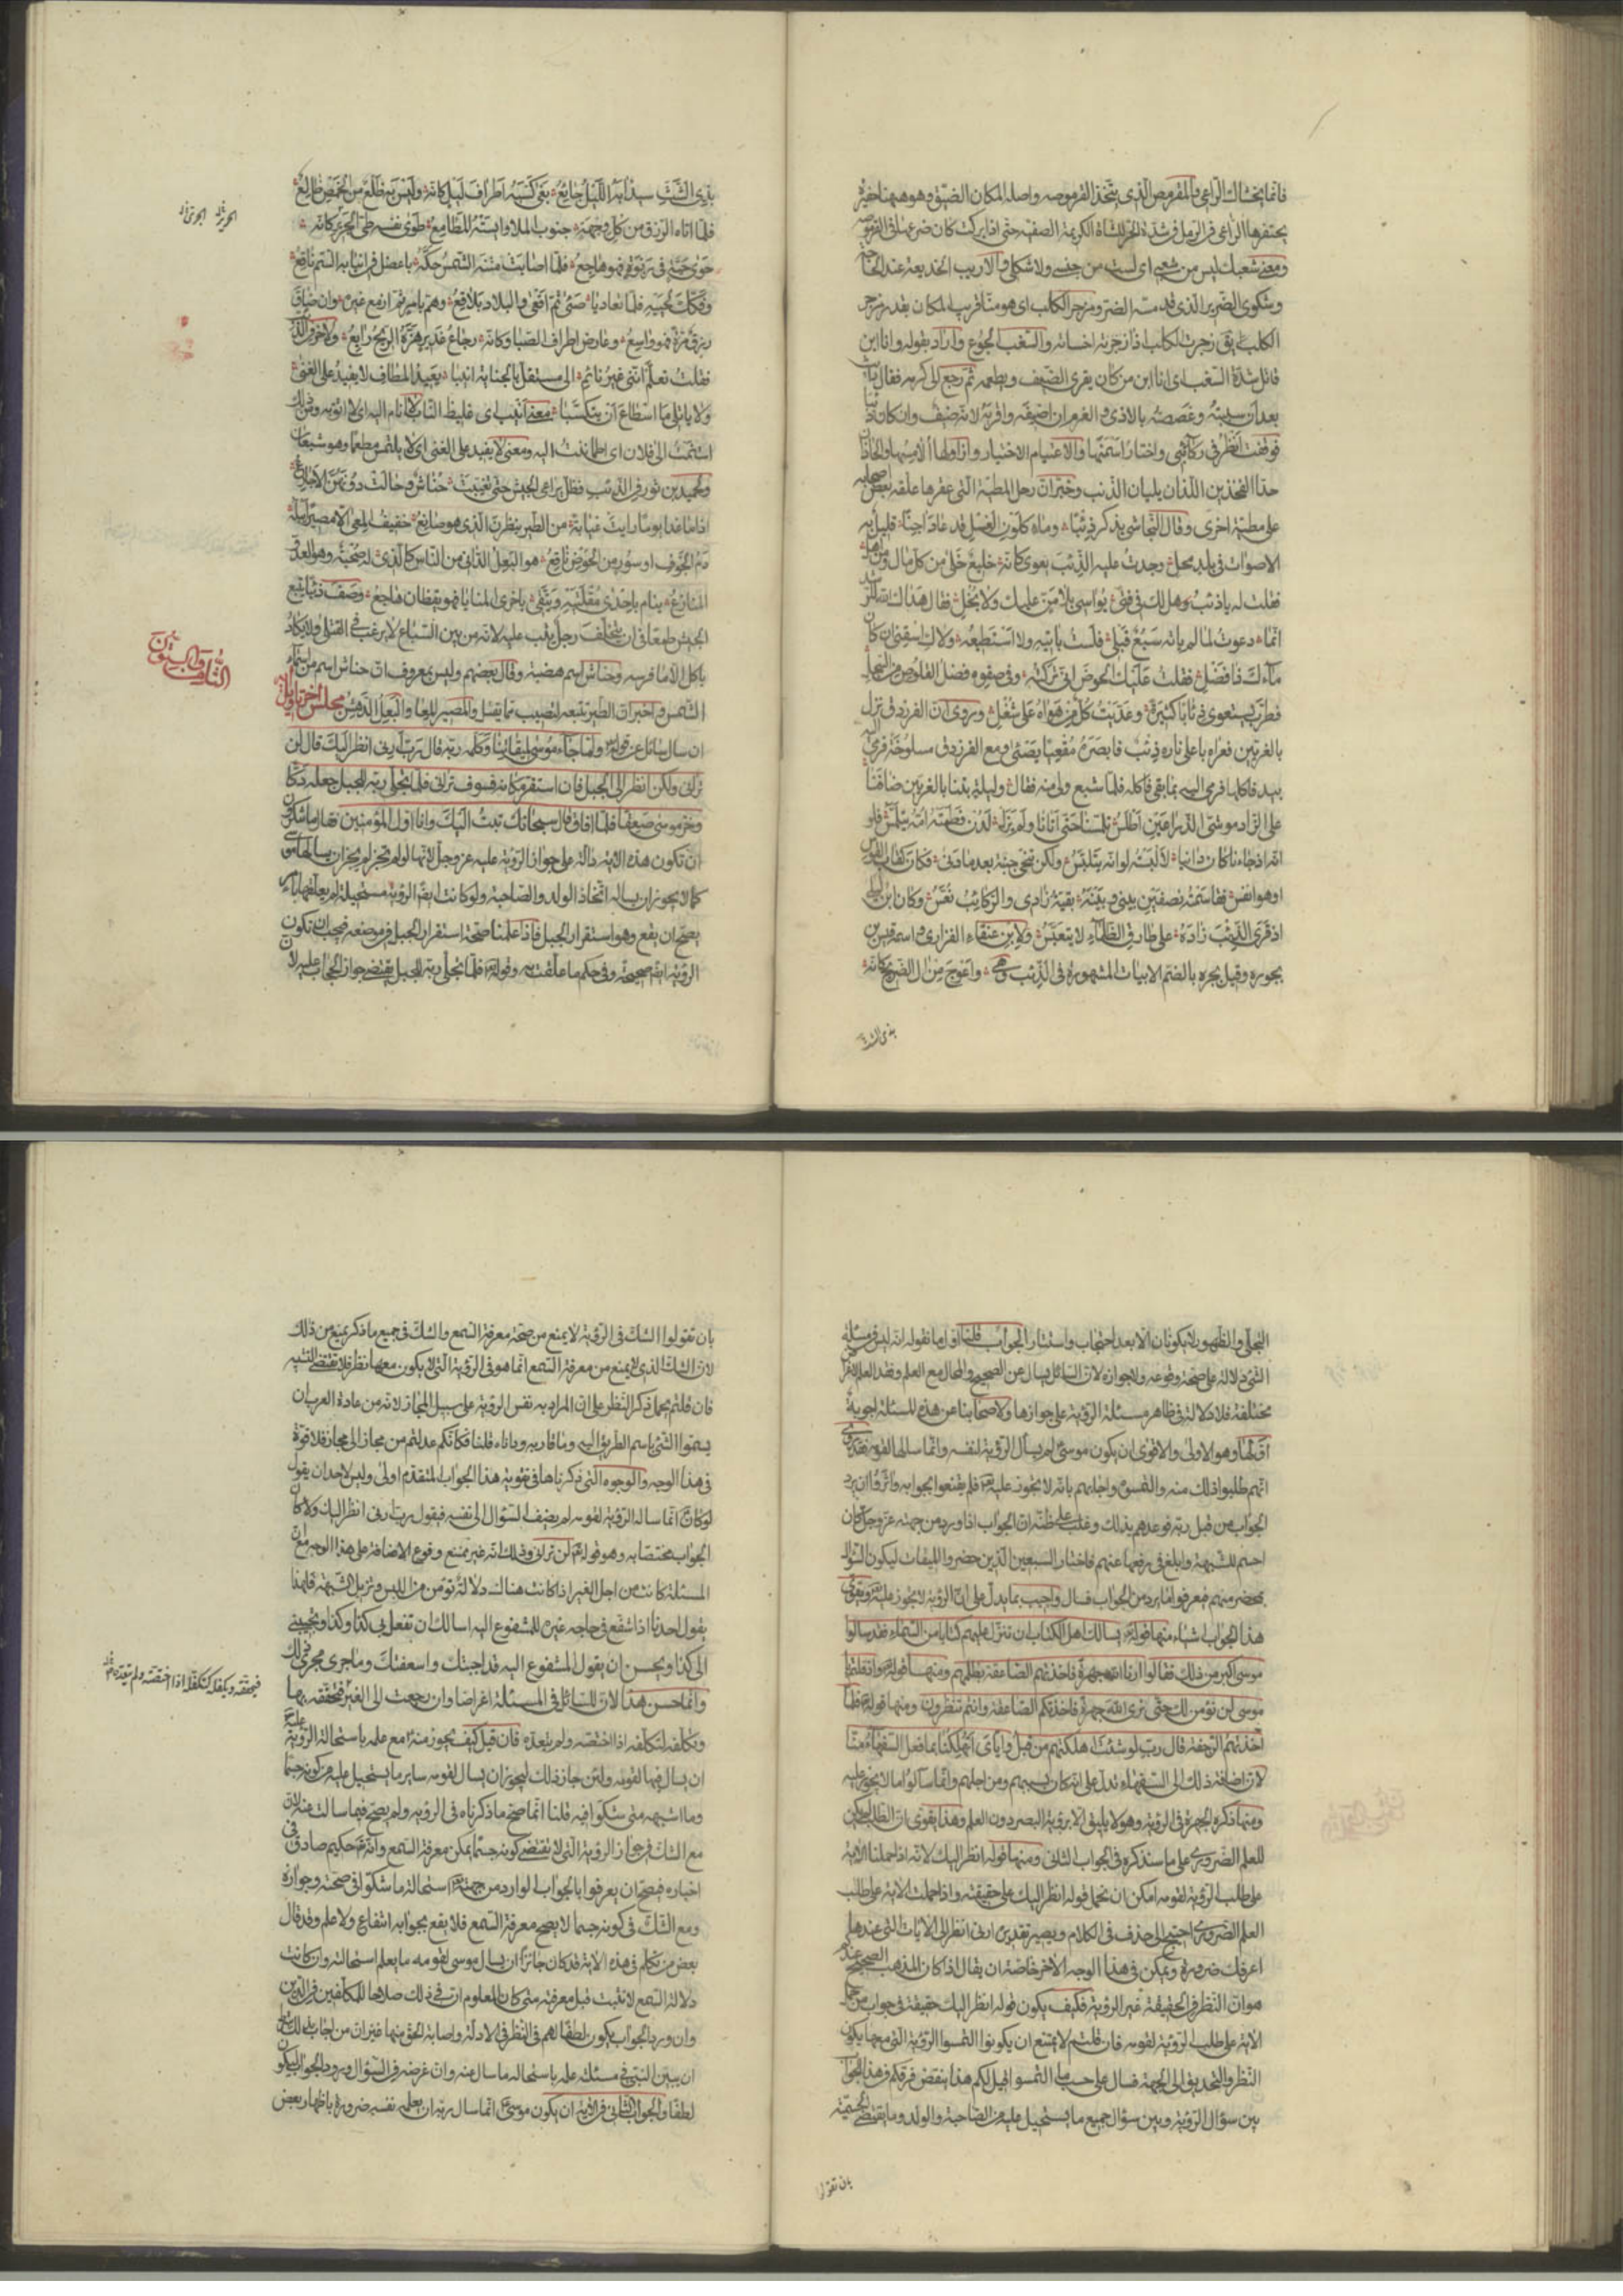 فانما يخشاك الراعي والمقرمص الذي يتخذ القرموصه واصله المكان الضيق وهو ههنا حفيرة
يحتفرها الراعي في الرمل في شدة الحر للشاة الكريمة الصفية حتى اذا بركت كان ضرعها في القرموصه
ومعنى شعبك ليس من شعبي اي لست من جنسي ولا شكلي والاريب الخديعة عند
وشكوى الضرير الذي قد مسه الضر ومزجر الكلب اي هو منا قريب المكان بقدر مزجر
الكلب يق زجرت الكلب فاذا زجرته اخسأته والسغب الجوع واراد بقوله وانا ابن
قاتل شدة السغب اي انا ابن من كان يقري الضيف ويطعمه ثم رجع الى كرمه فقال
بعد ان سببته وغصصته بالاذى والغرم ان اضيفه واقربه لانه ضيف وان كان
فوقفت انظر في ركائبي واختار اسمنها والاعتيام الاختيار
حذا الفخذين اللذان يليان الذنب وخبر ان رحل المطية التي عقرها علقه بعض اصحابه
على مطية اخرى وقال النجاشي يذكر ذئبا وماء كلون الغسل قد عاد اجنا قليل به
الاصوات في بلد محل وجدت عليه الذئب يعوي كانه خليع خلى من كل مال ومن اهل
فقلت له يا ذئب هل لك في فتى يواسي بلا من عليك ولا بخل فقال هداك الله للرشد
انما دعوت لما لم ياته سبع قبلي فلست باتيه ولا استطيعه ولاك اسقني ان كان
ماءك ذا فضل فقلت عليك الحوض اني تركته وفي صفوه فضل القلوص من السجل
فطرب يستعوي ذئابا كثيرة وعديت كل من هواه على شغل وروى ان الفرزدق نزل
بالغريين فعراه باعلى ناره ذئب فابصره مقعيا يصئي ومع الفرزدق مسلوخة فرمى
بيد فاكلها فرمى اليه بما بقي فاكله فلما شبع ولى منه فقال وليلة بتنا بالغريين ضافنا
على الزاد موشي الذراعين اطلس تلمسنا حتى اتانا ولم يزل لدن فطمته امه يتلمس فلو
انه اذ جاءنا كان دانيا لالبسته لو انه يتلبس ولكن تنحى جنبة بعدما دنى فكان كقاب القوس
او هو انفس فقاسمته نصفين بيني وبينه بقية زادي والركائب نعس وكان ابن ليلى
اذ قرى الذئب زاده على طارق الظلماء لا يتعبس ولابن عنقاء الفزاري واسمه قيس بن
بجره وقيل بجره بالضم الابيات المشهورة في الذئب وهي واعوج من ال الصريح كانه
بذي الشث
بذي الشث سيد آبه الليل جايع بغى كسبه اطراف ليل كانه وليس به ظلع من الخمص ظالع
فلما اتاه الرزق من كل وجهة جنوب الملا وايئسته المطامع طوى نفسه طي الجرير كانه
حوى حية في ربوة فهو هاجع فلما اصابت متنه الشمس حكه باعصل في انيابه السم ناقع
وفكك لحييه فلما تعاديا صئى ثم اقعى والبلاد بلاقع وهم بامر ثم ازمع غيره وان ضاق
رزق مرة فهو واسع وعارض اطراف الصبا وكانه رجاع غدير هزه الريح رايع ولاخر
فقلت تعلم انني غير نائم الى مستقل بالخيانة انيبا بعيد المطاف لا يفيد على الغنى
ولا ياتلي ما اسطاع ان يتكسبا معنى انيب اي غليظ الناب لا انام اليه اي لا اثق به ومن ذلك
استنمت الى فلان اي اطماننت اليه ومعنى لا يفيد على الغنى اي لا يلتمس مطعما وهو شبعان
ولحميد بن ثور في الذئب فظل يراعي الجيش حتى تغيبت خناش وحالت دونهن الاجارع
اذا ما غدا يوما رايت غيابة من الطير ينظرن الذي هو صانع خفيف المعى الا مصيرا يبله
دم الجوف او سؤر من الحوض ناقع هو البعل الداني من الناس كالذي له صحبة وهو العدو
المنازع ينام باحدى مقلتيه ويتقي باخرى المنايا فهو يقظان هاجع وصف ذئبا يتبع
الجيش طمعا في ان يتخلف رجل يثب عليه لانه من بين السباع لا يرغب في القتلى ولا يكاد
ياكل الا ما فرسه وخناش اسم هضبة وقال بعضهم وليس بمعروف ان خناش اسم من اسماء
الشمس واخبر ان الطير تتبعه لتصيب مما يقتل والمصير المعا والبعل الدهش مجلس اخر تاويل اية
ان سال سائل عن قوله تع ولما جاء موسى لميقاتنا وكلمه ربه قال رب ارني انظر اليك قال لن
تراني ولكن انظر الى الجبل فان استقر مكانه فسوف تراني فلما تجلى ربه للجبل جعله دكا
وخر موسى صعقا فلما افاق قال سبحانك تبت اليك وانا اول المؤمنين فقال ما تنكرون
ان تكون هذه الاية دالة على جواز الرؤية عليه عز وجل لانها لو لم تجز لم يجز ان يسالها موسى
كما لا يجوز ان يساله اتخاذ الولد والصاحبة ولو كانت ايضا الرؤية مستحيلة لم يعلقها بامر
يصح ان يقع وهو استقرار الجبل فاذا علمنا صحة استقرار الجبل في موضعه فيجب ان تكون
الرؤية ايضا صحيحة وفي حكم ما علقت به وقوله تع فلما تجلى ربه للجبل يقتضي جواز الحجاب عليه لان
الثالث والستون
التجلي والظهور لا يكونان الا بعد احتجاب واستتار الجواب قلنا اول ما نقوله انه ليس في مسئلة
الشئ دلالة على صحة وقوعه ولا جوازه لان السائل يسال عن الصحيح والمحال مع العلم وفقد العلم لاغراض
مختلفة فلا دلالة في ظاهر مسئلة الرؤية على جوازها ولاصحابنا عن هذه المسئلة اجوبة
اولها وهو الاولى والاقوى ان يكون موسى لم يسال الرؤية لنفسه وانما سالها لقومه فقد روى
انهم طلبوا ذلك منه والتمسوه واجابهم بانه لا يجوز عليه تع فلم يقنعوا بجوابه واثروا ان يرد
الجواب من قبل ربه فوعدهم بذلك وغلب على ظنه ان الجواب اذا ورد من جهته عز وجل كان
احسم للشبهة وابلغ في رفعها عنهم فاختار السبعين الذين حضروا الميقات ليكون السؤال
بمحضر منهم فيعرفوا ما يرد من الجواب فسال واجيب بما يدل على ان الرؤية لا يجوز عليه تع ويقوي
هذا الجواب اشياء منها قوله تع يسالك اهل الكتاب ان تنزل عليهم كتابا من السماء فقد سالوا
موسى اكبر من ذلك فقالوا ارنا الله جهرة فاخذتهم الصاعقة بظلمهم ومنها قوله تع واذ قلتم يا
موسى لن نؤمن لك حتى نرى الله جهرة فاخذتكم الصاعقة وانتم تنظرون ومنها قوله تع فلما
اخذتهم الرجفة قال رب لو شئت اهلكتهم من قبل واياي اتهلكنا بما فعل السفهاء منا
لان اضافة ذلك الى السفهاء تدل على انه كان بسببهم ومن اجلهم وانما سالوا ما لا يجوز عليه
ومنها ذكره الجهرة في الرؤية وهو لا يليق الا برؤية البصر دون العلم وهذا يقوي ان الطلب لم يكن
للعلم الضروري على ما سنذكره في الجواب الثاني ومنها قوله انظر اليك لانه اذا حملنا الاية
على طلب الرؤية لقومه امكن ان نحمل قوله انظر اليك على حقيقته واذا حملت الاية على طلب
العلم الضروري احتيج الى حذف في الكلام ويصير تقديره ارني انظر الى الايات التي عندها
اعرفك ضرورة ويمكن في هذا الوجه الاخر خاصة ان يقال اذا كان المذهب الصحيح عندكم
هو ان النظر في الحقيقة غير الرؤية فكيف يكون قوله انظر اليك حقيقة في جواب من حمل
الاية على طلب الرؤية لقومه فان قلتم لا يمتنع ان يكونوا التمسوا الرؤية التي معها يكون
النظر والتحديق الى الجهة فسال على حسب ما التمسوا قيل لكم هذا ينقض فرقكم في هذا الجواب
بين سؤال الرؤية وبين سؤال جميع ما يستحيل عليه من الصاحبة والولد وما يقتضي الجسمية
بان تقولوا
بان تقولوا الشك في الرؤية لا يمنع من صحة معرفة السمع والشك في جميع ما ذكر يمنع من ذلك
لان الشك الذي لا يمنع من معرفة السمع انما هو في الرؤية التي لا يكون معها نظر ولا تقتضي التشبيه
فان قلتم يحمل ذكر النظر على ان المراد به نفس الرؤية على سبيل المجاز لانه من عادة العرب ان
يسموا الشئ باسم الطريق اليه وما قاربه وداناه قلنا فكانكم عدلتم من مجاز الى مجاز فلا قوة
في هذا الوجه والوجوه التي ذكرناها في تقوية هذا الجواب المتقدم اولى وليس لاحد ان يقول
لو كان انما ساله الرؤية لقومه لم يضف السؤال الى نفسه فيقول رب ارني انظر اليك ولا كان
الجواب مختصا به وهو قوله تع لن تراني وذلك انه غير ممتنع وقوع الاضافة على هذا الوجه مع ان
المسئلة كانت من اجل الغير اذا كانت هناك دلالة تؤمن من اللبس وتزيل الشبهة فلهذا
يقول احدنا اذا شفع في حاجة غيره للمشفوع اليه اسالك ان تفعل بي كذا وكذا وتجيبني
الى كذا ويحسن ان يقول المشفوع اليه قد اجبتك واسعفتك وما جرى مجرى ذلك
وانما حسن هذا لان للسائل في المسئلة اغراضا وان رجعت الى الغير فتحققه بها
وتكلفه كتكلفه اذا اختصه ولم يتعده فان قيل كيف يجوز منه مع علمه باستحالة الرؤية عليه تع
ان يسال فيها لقومه ولئن جاز ذلك ليجوز ان يسال لقومه ساير ما يستحيل عليه من كونه جسما
وما اشبهه متى شكوا فيه قلنا انما صح ما ذكرناه في الرؤية ولم يصح فيما سالت عنه لان
مع الشك في جواز الرؤية التي لا تقتضي كونه جسما يمكن معرفة السمع وانه تع حكيم صادق في
اخباره فيصح ان يعرفوا بالجواب الوارد من جهته تع استحالة ما شكوا في صحته وجوازه
ومع الشك في كونه جسما لا يصح معرفة السمع فلا يقع بجوابه انتفاع ولا علم وقد قال
بعض من تكلم في هذه الاية قد كان جائزا ان يسال موسى لقومه ما يعلم استحالته وان كانت
دلالة السمع لا تثبت قبل معرفته متى كان المعلوم ان في ذلك صلاحا للمكلفين في الدين
وان ورد الجواب يكون لطفا لهم في النظر في الادلة واصابة الحق منها غير ان من اجاب بذلك شرط
ان يبين النبي في مسئلته علمه باستحالة ما سال عنه وان غرضه في السؤال ورود الجواب ليكون
لطفا والجواب الثاني في الاية ان يكون موسى ع انما سال ربه ان يعلمه نفسه ضرورة باظهار بعض